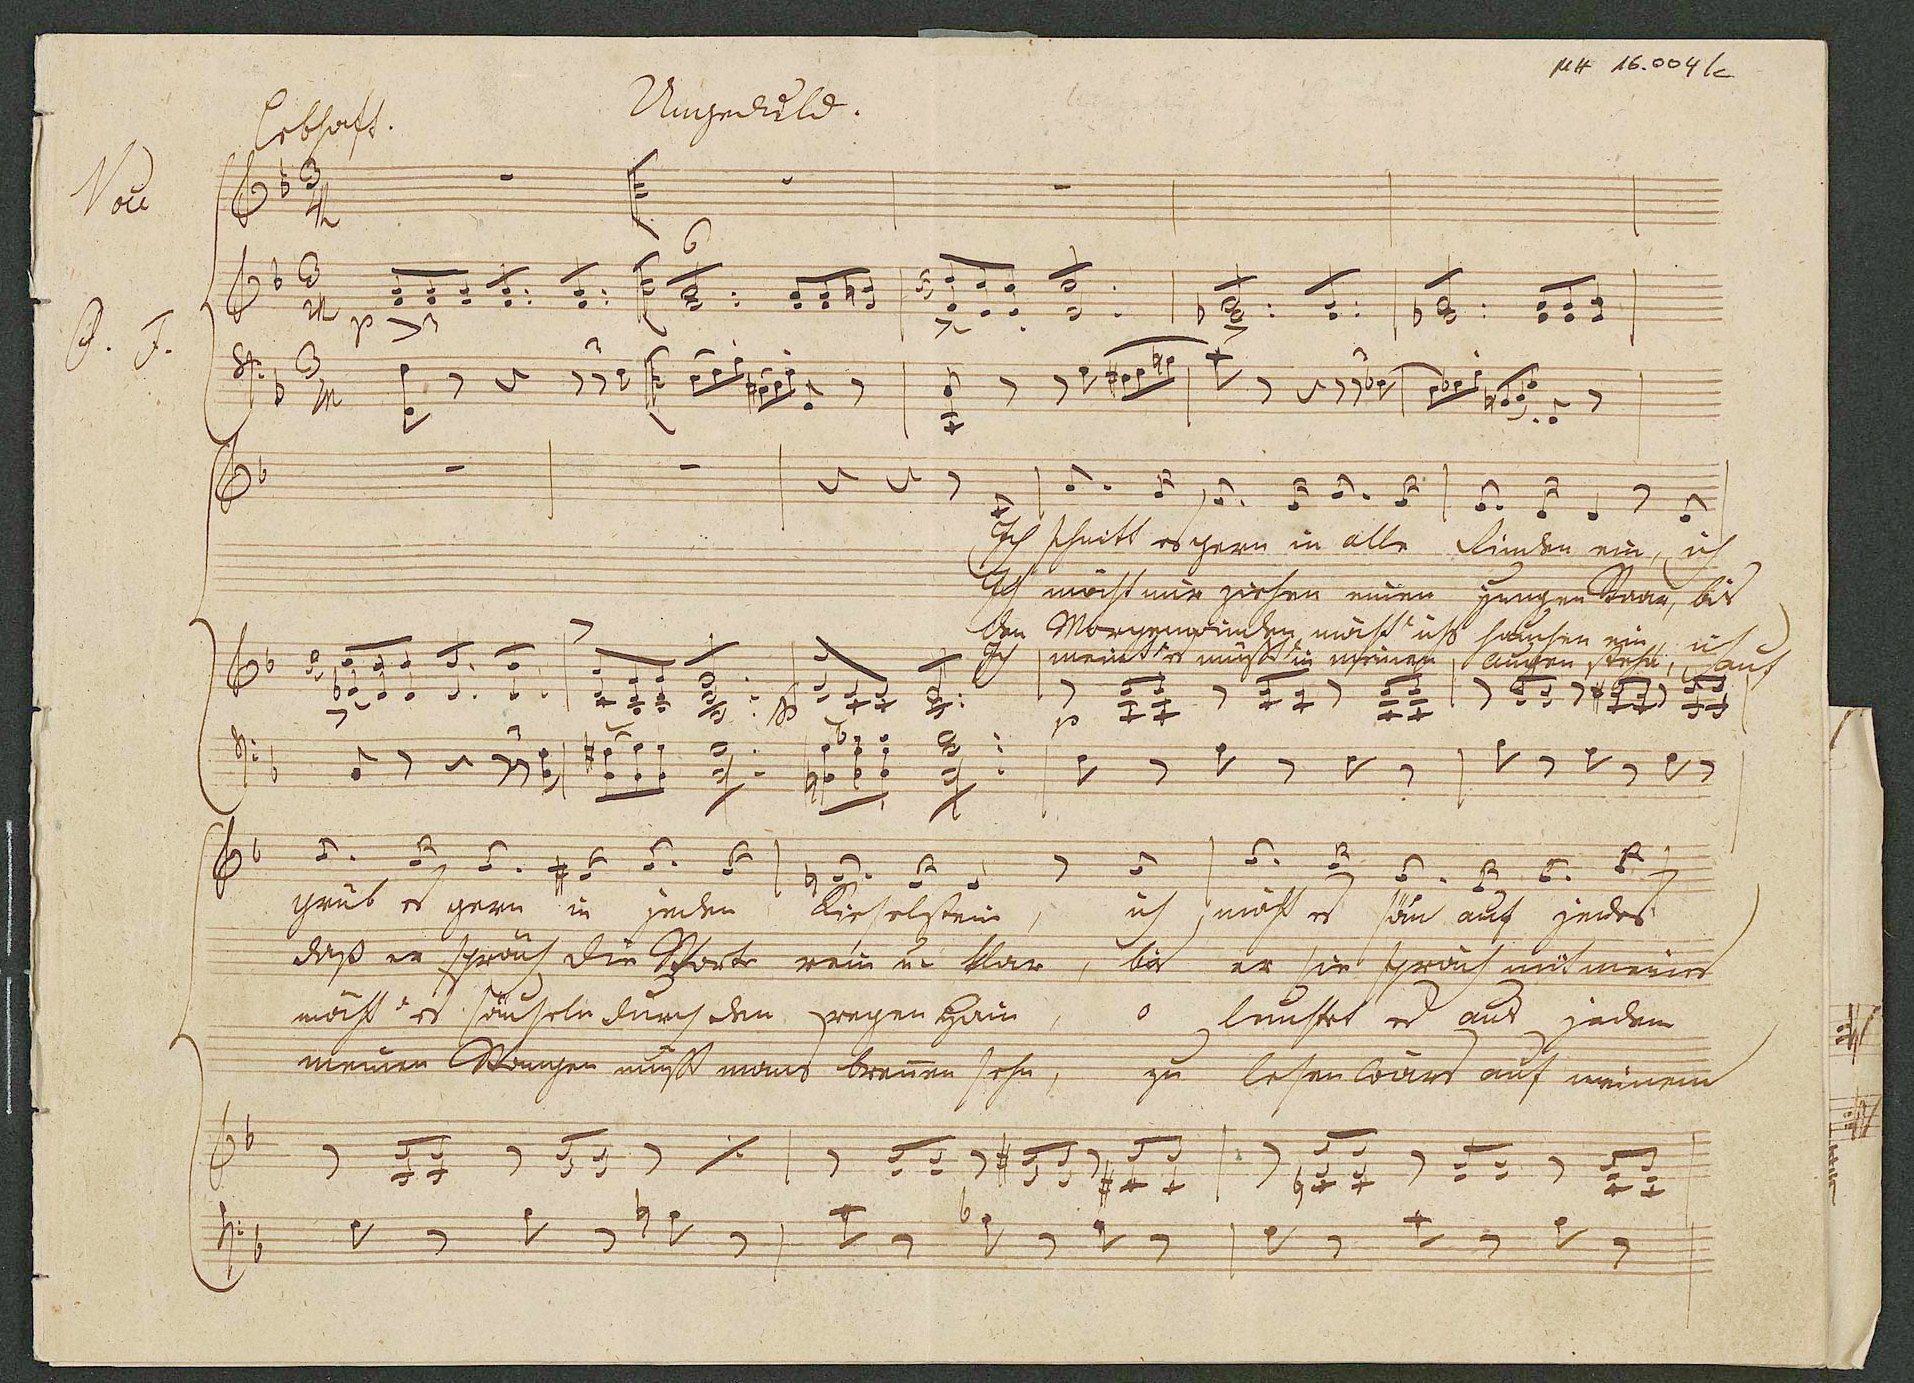 MH 16.004/c
Lebhaft. Ungeduld.
Voce
P. F.
Ich schnitt es gern in alle Rinden ein, ich
Ich möcht mir ziehen einen jungen Staar, bis
Den Morgenwinden möcht' ichs hauchen ein, ich
Ich meint es müßt in meinen Augen stehn, auf
grüb es gern in jeden Kieselstein, ich möcht es sä'n auf jedes
daß er spräch die Worte rein u. klar, bis er sie spräch mit meines
möcht' es säuseln durch den regen Hain, o leuchtet es aus jedem
meinen Wangen müßt mans breñen sehn, zu lesen wärs auf meinem